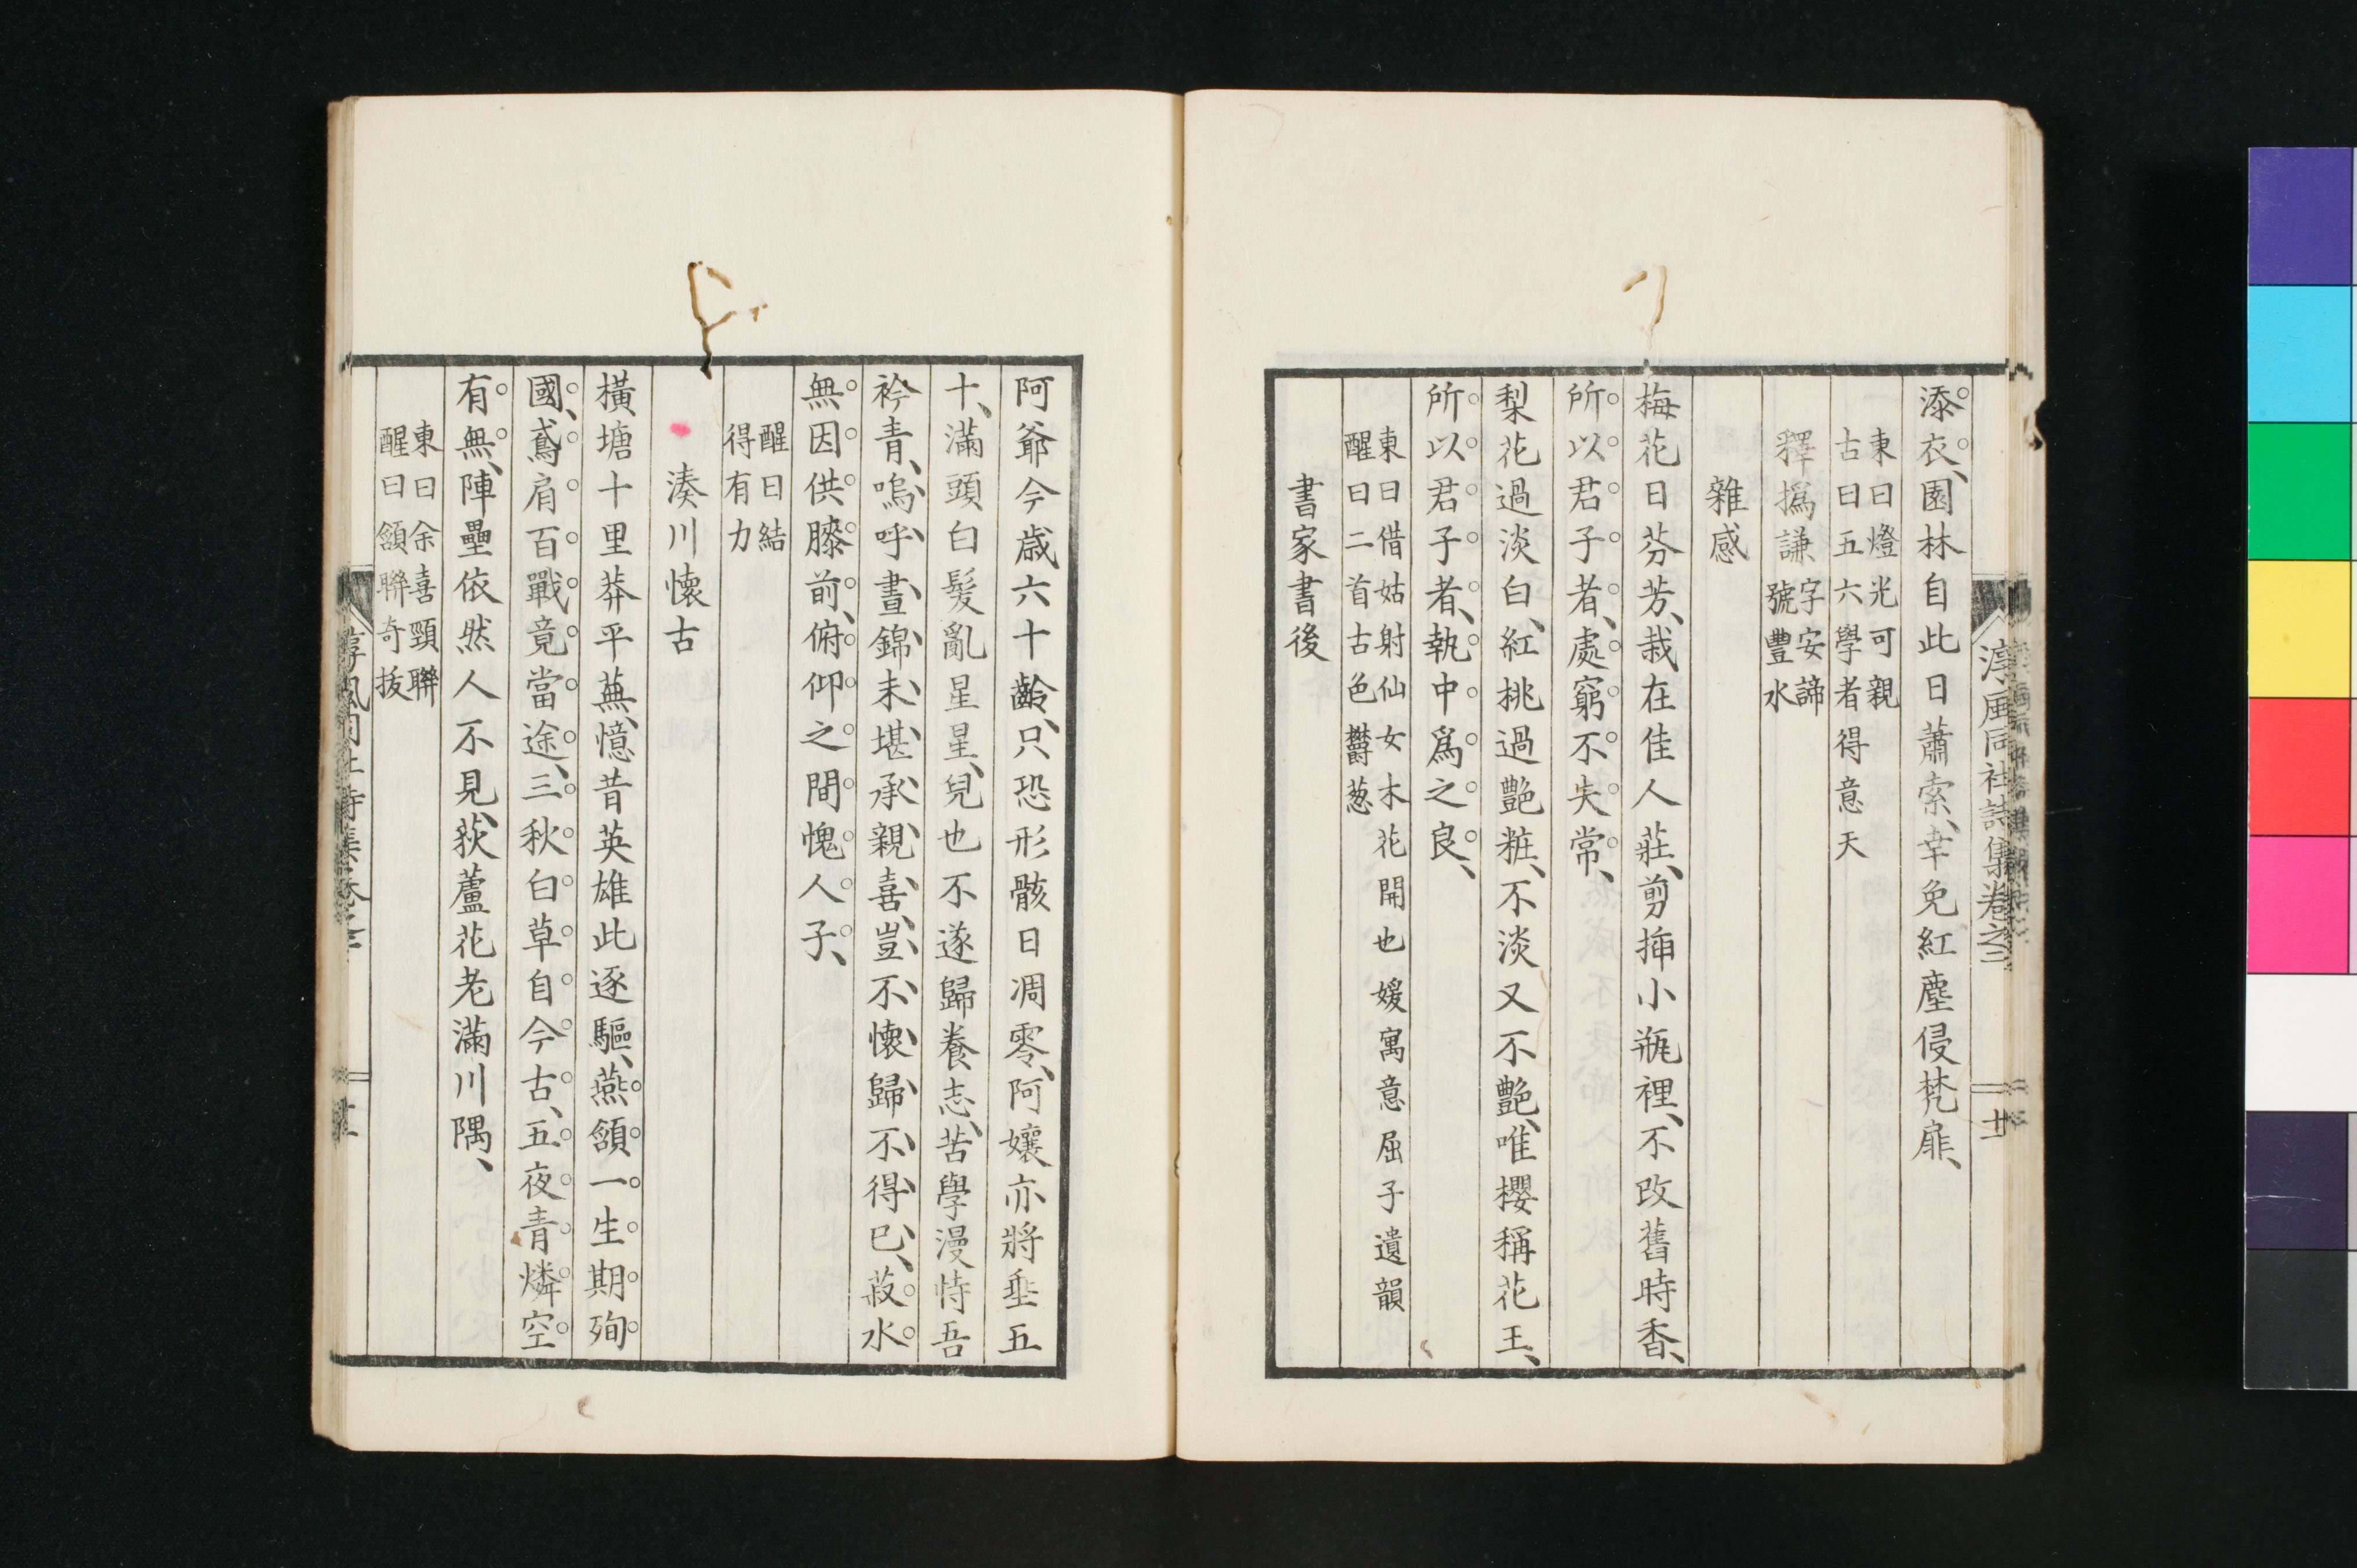 淳風同社詩集卷之二
十一
添衣、園林自此日蕭索、幸免紅塵侵梵扉、
東曰燈光可親
古曰五六學者得意天
釋撝謙字安諦
號豐水
雜感
梅花日芬芳、栽在佳人莊、剪揷小瓶裡、不改舊時香、
所以君子者、處窮不失常、
梨花過淡白、紅桃過艷粧、不淡又不艷、唯櫻稱花王、
所以君子者、執中爲之良、
東曰借姑射仙女木花開也媛寓意屈子遺韻
醒曰二首古色欝葱
書家書後
阿爺今歳六十齡、只恐形骸日凋零、阿孃亦將垂五
十、滿頭白髮亂星星、兒也不遂歸養志、苦學漫恃吾
衿青、嗚呼、晝錦未堪承親喜、豈不懷歸不得已、菽水
無因供膝前、俯仰之間愧人子、
醒曰結
得有力
湊川懷古
橫塘十里莽平蕪、憶昔英雄此逐驅、燕頷一生期殉
國、鳶肩百戰竟當途、三秋白草自今古、五夜青燐空
有無、陣壘依然人不見、荻蘆花老滿川隅、
東曰余喜頸聯
醒曰頷聯奇拔